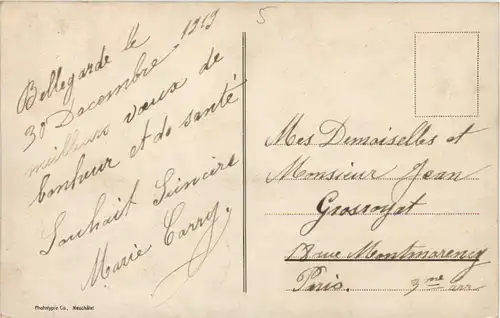 Bellegarde le
30 Decembre 1913
meilleurs vœux de
bonheur et de santé
Souhait Sincère
Marie Carry.
5
Mes Demoiselles et
Monsieur Jean
18 rue Montmorency
Paris. 3me arr
Phototypie Co., Neuchâtel